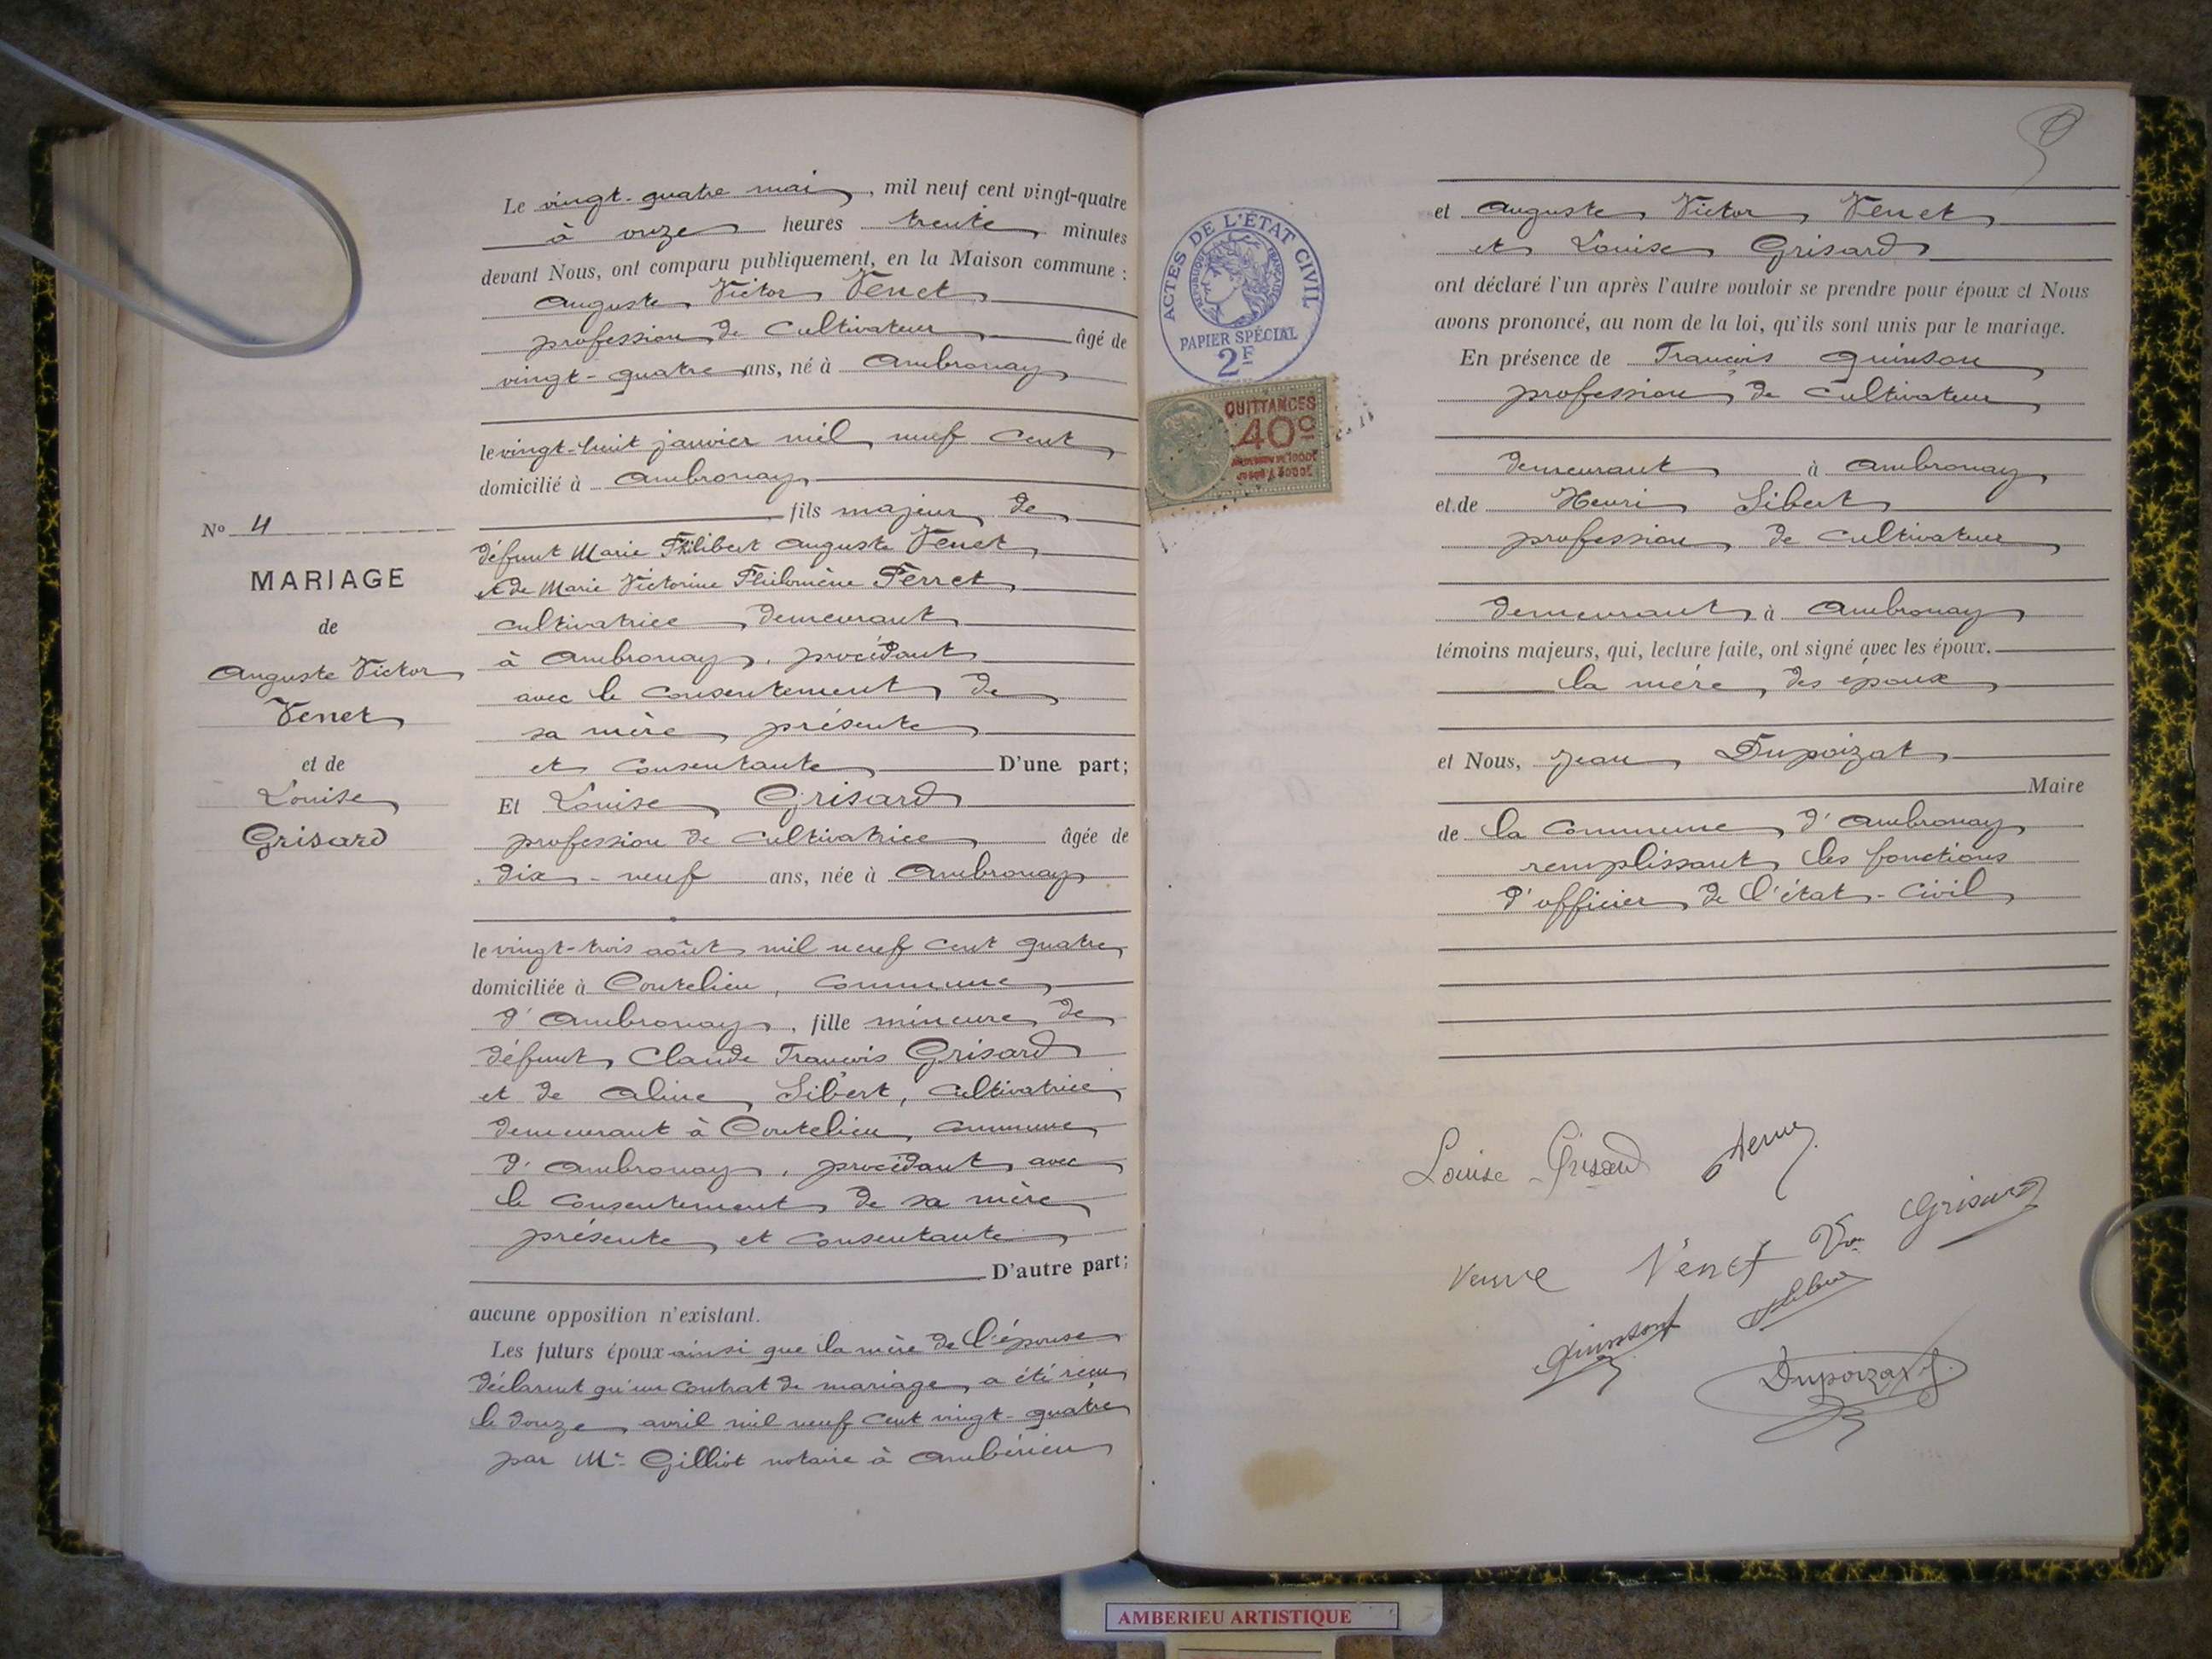 Nº 4
MARIAGE
de
Auguste Victor
Venet
et de
Louise
Grisard
Le vingt-quatre mai, mil neuf cent vingt-quatre
à onze heures trente minutes
devant Nous, ont comparu publiquement, en la Maison commune :
Auguste Victor Venet
profession de cultivateur âgé de
vingt-quatre ans, né à Ambronay
le vingt-huit janvier mil neuf cent
domicilié à Ambronay
fils majeur de
défunt Marie Philibert Auguste Venet
et de Marie Victorine Philomène Ferret
cultivatrice demeurant
à Ambronay, procédant
avec le consentement de
sa mère présente
et consentante D'une part;
Et Louise Grisard
profession de cultivatrice âgée de
dix-neuf ans, née à Ambronay
le vingt-trois août mil neuf cent quatre
domiciliée à Coutelieu, commune
d'Ambronay, fille mineure de
défunt Claude François Grisard
et de Aline Sibert, cultivatrice
demeurant à Coutelieu, commune
d'Ambronay, procédant avec
le consentement de sa mère
présente et consentante
D'autre part;
aucune opposition n'existant.
Les futurs époux ainsi que la mère de l'épouse
déclarent qu'un contrat de mariage a été reçu
le douze avril mil neuf cent vingt-quatre
par Me Gilliot notaire à Ambérieu
ACTES DE L'ÉTAT CIVIL
RÉPUBLIQUE FRANÇAISE
PAPIER SPÉCIAL
2F
QUITTANCES
40c
et Auguste Victor Venet
et Louise Grisard
ont déclaré l'un après l'autre vouloir se prendre pour époux et Nous
avons prononcé, au nom de la loi, qu'ils sont unis par le mariage.
En présence de François Quinson
profession de cultivateur
demeurant à Ambronay
et de Henri Sibert
profession de cultivateur
demeurant à Ambronay
témoins majeurs, qui, lecture faite, ont signé avec les époux.
la mère des époux
et Nous, Jean Dupoizat
Maire
de la commune d'Ambronay
remplissant les fonctions
d'officier de l'état-civil
Louise Grisard
Vve Grisard
Veuve Venet
Quinson
Dupoizat J.
AMBERIEU ARTISTIQUE